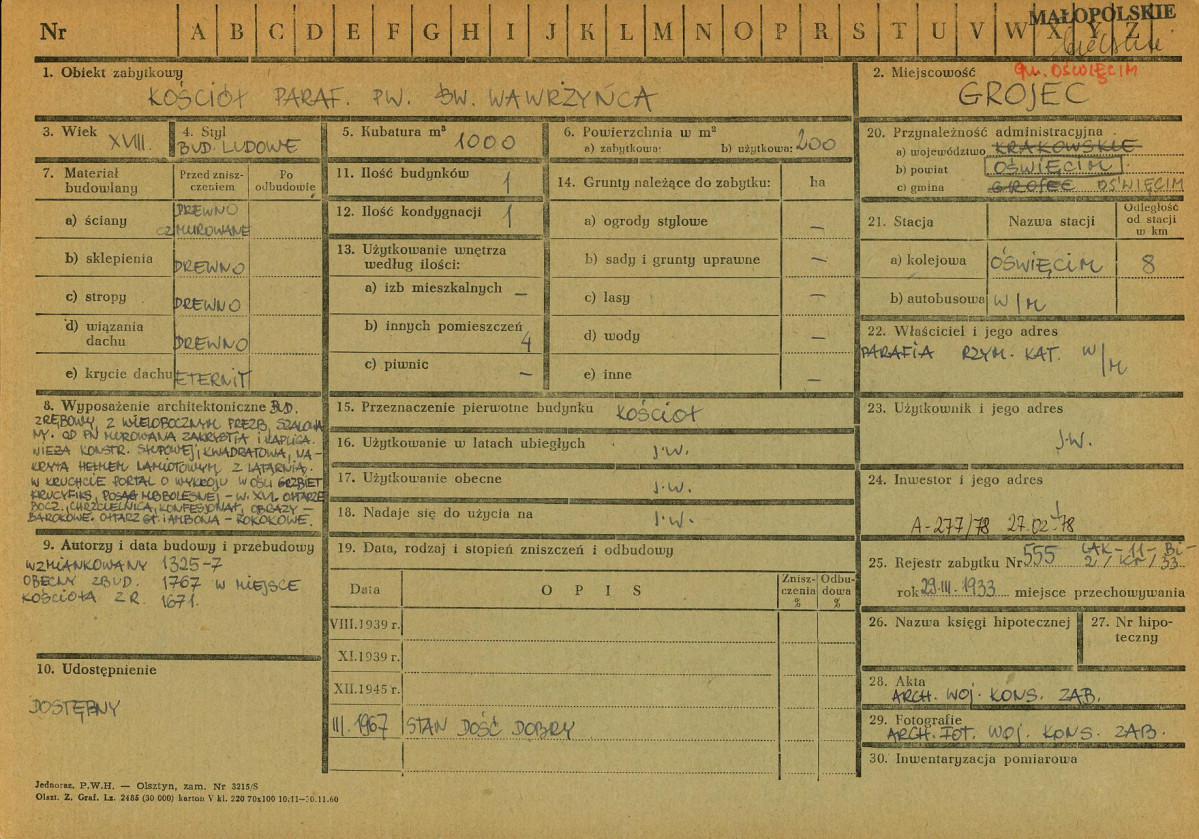 Nr A B C D E F G H I J K L M N O P R S T U V W X Y Z
MAŁOPOLSKIE
1. Obiekt zabytkowy
KOŚCIÓŁ PARAF. PW. ŚW. WAWRZYŃCA
2. Miejscowość
gm. OŚWIĘCIM
GROJEC
3. Wiek
XVIII.
4. Styl
BUD. LUDOWE
5. Kubatura m³ 1000
6. Powierzchnia w m²
a) zabytkowa: b) użytkowa: 200
7. Materiał budowlany
Przed zniszczeniem
Po odbudowie
a) ściany DREWNO
CZ MUROWANE
b) sklepienia DREWNO
c) stropy DREWNO
d) wiązania dachu DREWNO
e) krycie dachu ETERNIT
8. Wyposażenie architektoniczne BUD.
ZRĘBOWY, Z WIELOBOCZNYM PREZB, SZALOWA
NY. OD PN MUROWANA ZAKRYSTIA I KAPLICA.
WIEŻA KONSTR. SŁUPOWEJ, KWADRATOWA, NA-
KRYTA HEŁMEM ŁAMIOTOWYM Z LATARNIĄ.
W KRUCHCIE PORTAL O WYKROJU W OŚLI GRZBIET
KRUCYFIKS, POSĄG MB BOLESNEJ - W. XVI. OŁTARZE
BOCZ., CHRZCIELNICA, KONFESJONAŁ, OBRAZY -
BAROKOWE. OŁTARZ GŁ. I AMBONA - ROKOKOWE.
9. Autorzy i data budowy i przebudowy
WZMIANKOWANY 1325-7
OBECNY ZBUD. 1767 W MIEJSCE
KOŚCIOŁA Z R. 1671.
10. Udostępnienie
DOSTĘPNY
11. Ilość budynków 1
12. Ilość kondygnacji 1
13. Użytkowanie wnętrza
według ilości:
a) izb mieszkalnych —
b) innych pomieszczeń 4
c) piwnic —
14. Grunty należące do zabytku: ha
a) ogrody stylowe —
b) sady i grunty uprawne —
c) lasy —
d) wody —
e) inne —
15. Przeznaczenie pierwotne budynku KOŚCIÓŁ
16. Użytkowanie w latach ubiegłych J.W.
17. Użytkowanie obecne J.W.
18. Nadaje się do użycia na J.W.
19. Data, rodzaj i stopień zniszczeń i odbudowy
Data O P I S Zniszczenia % Odbudowa %
VIII.1939 r.
XI.1939 r.
XII.1945 r.
III.1967 STAN DOŚĆ DOBRY
20. Przynależność administracyjna
a) województwo KRAKOWSKIE
b) powiat OŚWIĘCIM
c) gmina GROJEC OŚWIĘCIM
21. Stacja Nazwa stacji Odległość od stacji w km
a) kolejowa OŚWIĘCIM 8
b) autobusowa W/M
22. Właściciel i jego adres
PARAFIA RZYM. KAT. W/M
23. Użytkownik i jego adres
J.W.
24. Inwestor i jego adres
A-277/78 27.02.78
25. Rejestr zabytku Nr 555
rok 29.III.1933 miejsce przechowywania
26. Nazwa księgi hipotecznej
27. Nr hipoteczny
28. Akta
ARCH. WOJ. KONS. ZAB.
29. Fotografie
ARCH. FOT. WOJ. KONS. ZAB.
30. Inwentaryzacja pomiarowa
Jednoraz. P.W.H. — Olsztyn, zam. Nr 3215/S
Olszt. Z. Graf. Lz. 2485 (30 000) karton V kl. 220 70x100 10.11—30.11.60